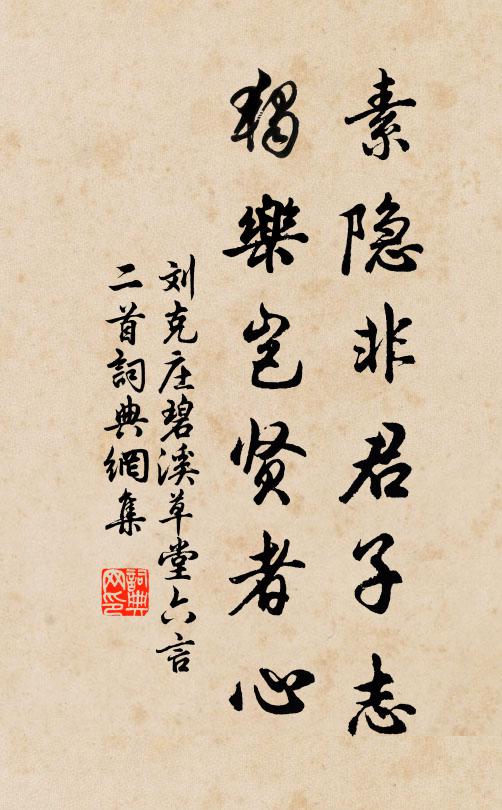 素隐非君子志
独樂岂贤者心
刘克庄碧溪草堂六言
二首詞典網集
詞典網印